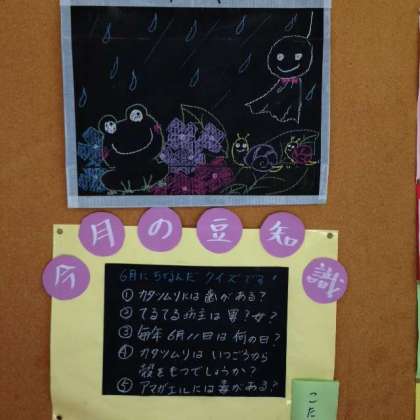 今月の豆知識
6月にちなんだ クイズです!
① カタツムリには 歯がある?
② てるてる坊主は 男?女?
③ 毎年 6月11日は 何の日?
④ カタツムリは いつごろから
殻をもつでしょうか?
⑤ アマガエルには毒がある?
こた